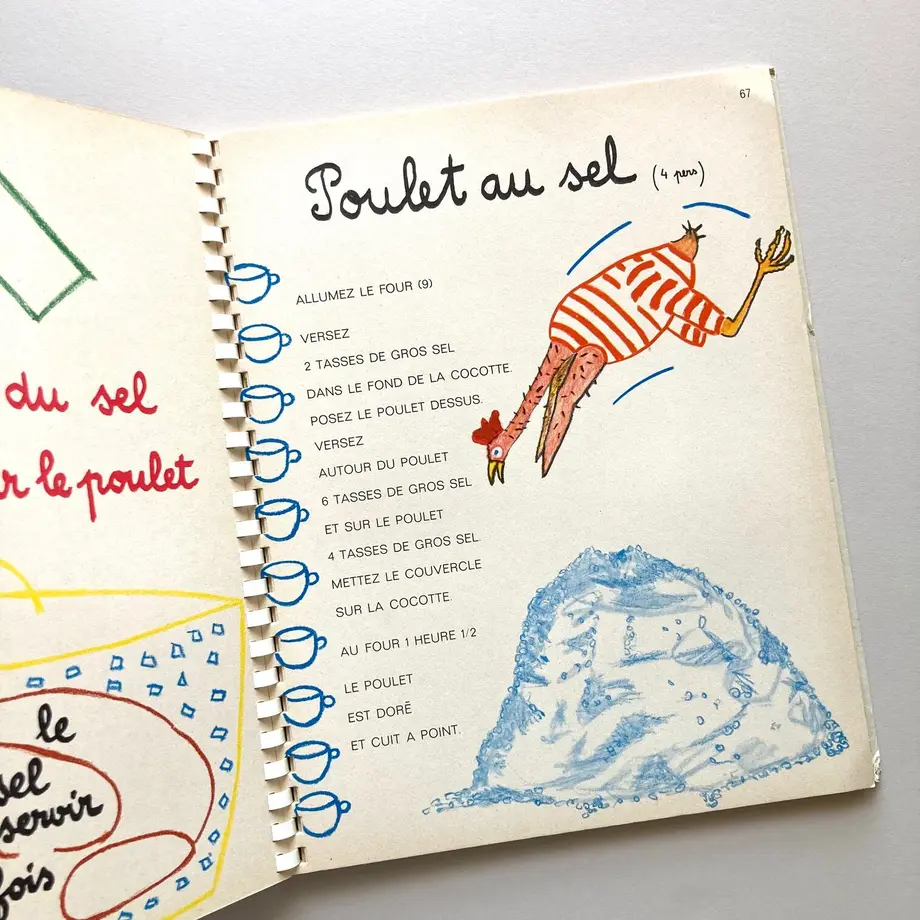 du sel
le poulet
le
sel
servir
fois
67
Poulet au sel (4 pers)
ALLUMEZ LE FOUR (9)
VERSEZ
2 TASSES DE GROS SEL
DANS LE FOND DE LA COCOTTE.
POSEZ LE POULET DESSUS.
VERSEZ
AUTOUR DU POULET
6 TASSES DE GROS SEL
ET SUR LE POULET
4 TASSES DE GROS SEL.
METTEZ LE COUVERCLE
SUR LA COCOTTE.
AU FOUR 1 HEURE 1/2
LE POULET
EST DORÉ
ET CUIT A POINT.